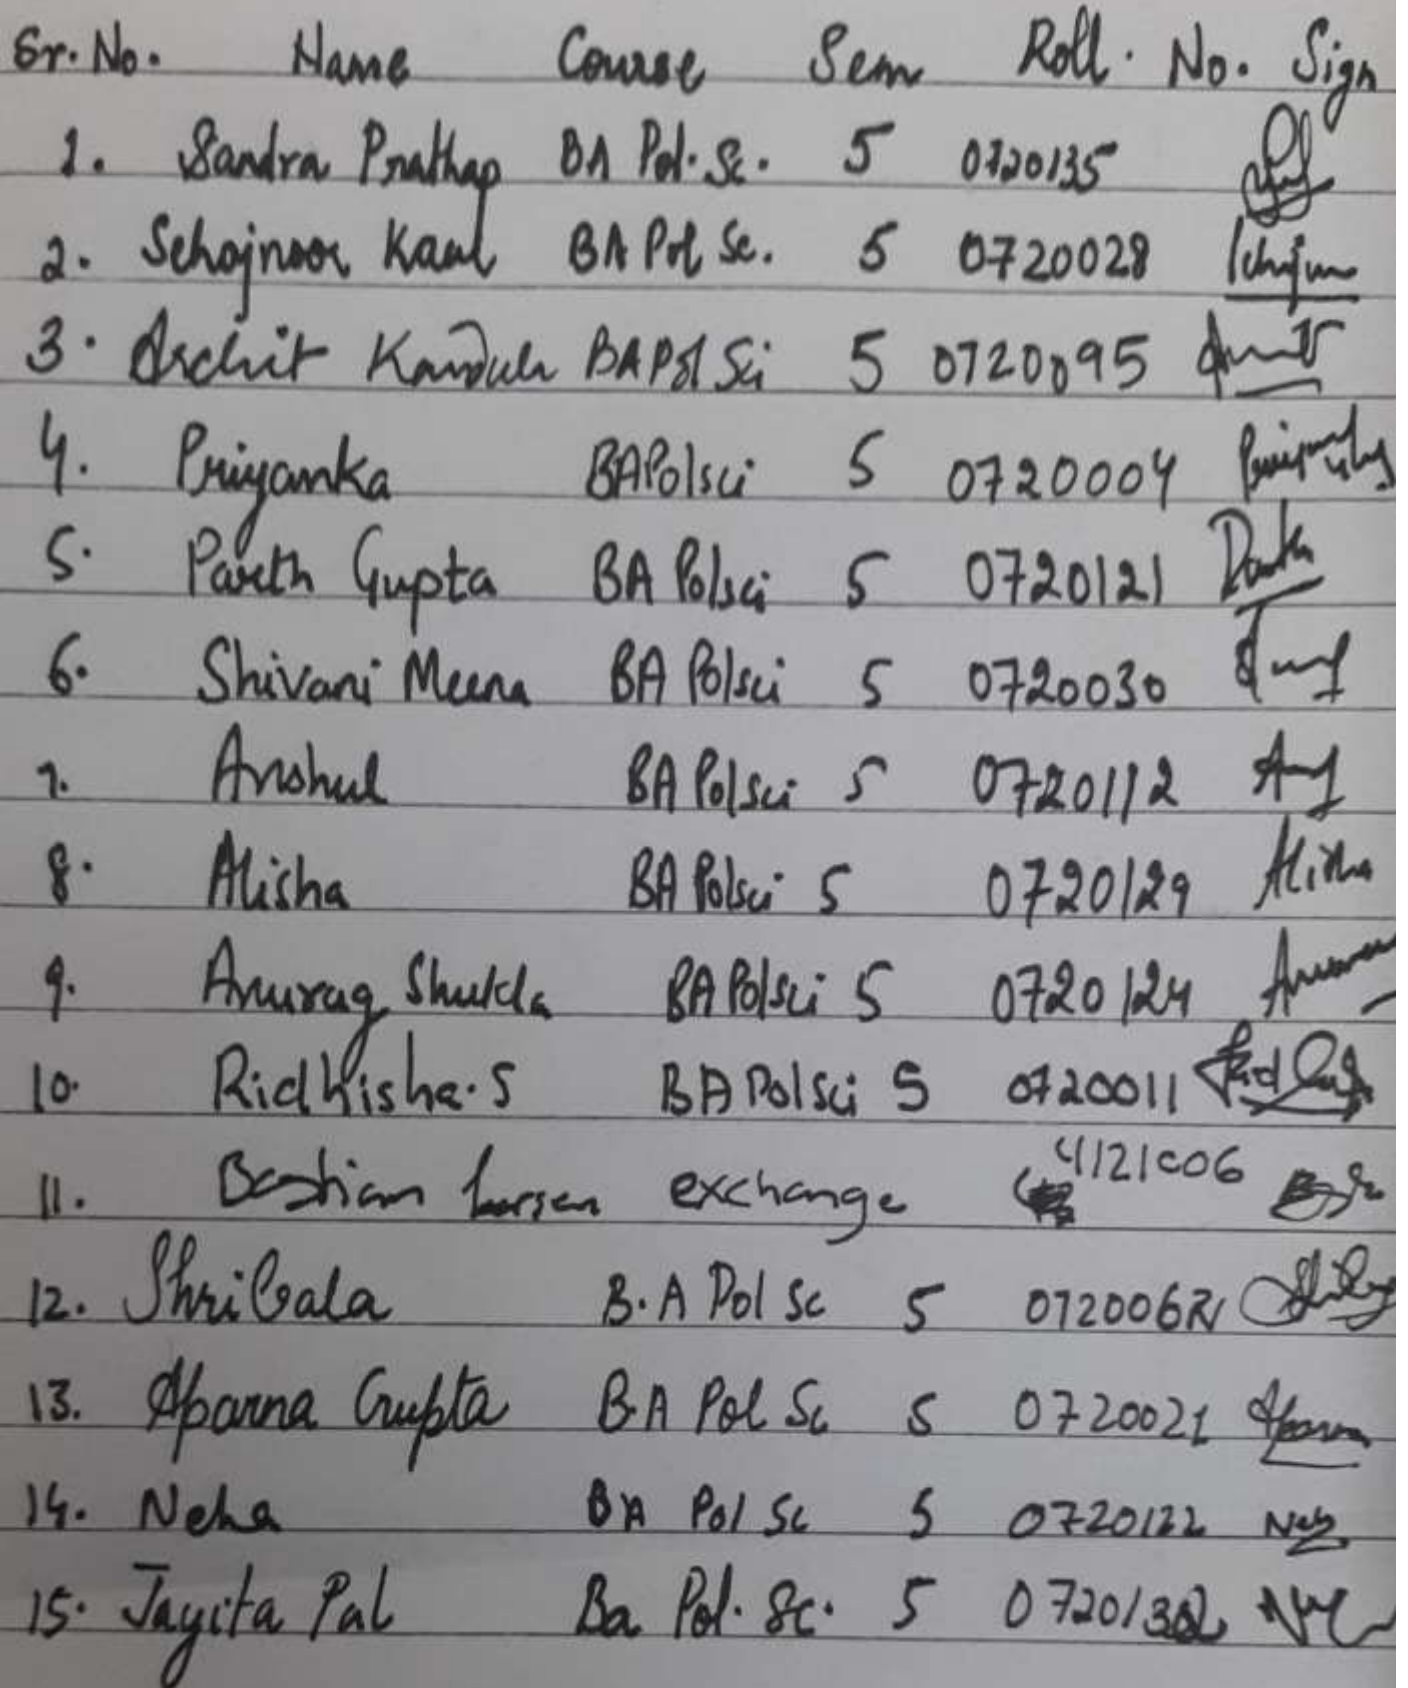 Sr. No. Name Course Sem Roll. No. Sign
1. Sandra Prathap BA Pol. Sc. 5 0720135
2. Sehajnoor Kaul BA Pol Sc. 5 0720028
3. Archit BA Pol Sci 5 0720095
4. Priyanka BA Polsci 5 0720004
5. Parth Gupta BA Polsci 5 0720121 Parth
6. Shivani Meena BA Polsci 5 0720030
7. Anshul BA Polsci 5 0720112
8. Alisha BA Polsci 5 0720129 Alisha
9. Anurag Shukla BA Polsci 5 0720124
10. Ridhisha. S BA Pol Sci 5 0720011
11. Bastian larsen exchange 4121006
12. ShriBala B.A Pol Sc 5
13. Aparna Gupta B.A Pol Sc 5 0720021 Aparna
14. Neha BA Pol Sc 5 0720122
15. Jayita Pal Ba Pol. Sc. 5